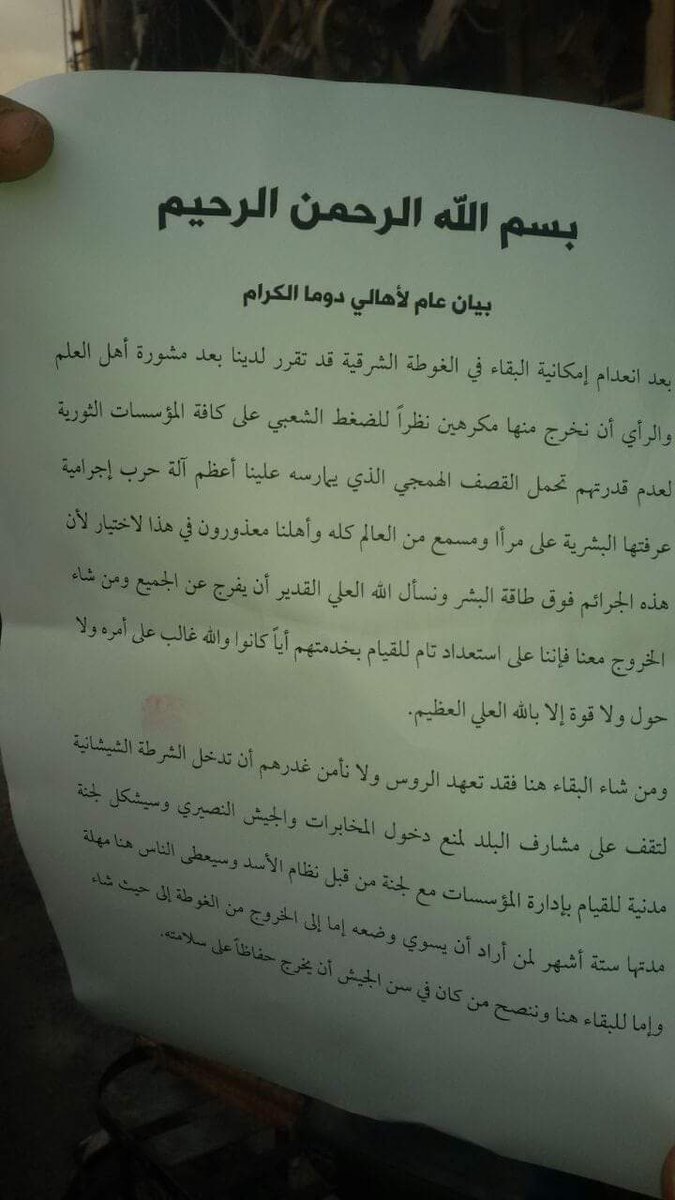 بسم الله الرحمن الرحيم
بيان عام لأهالي دوما الكرام
بعد انعدام إمكانية البقاء في الغوطة الشرقية قد تقرر لدينا بعد مشورة أهل العلم
والرأي أن نخرج منها مكرهين نظراً للضغط الشعبي على كافة المؤسسات الثورية
لعدم قدرتهم تحمل القصف الهمجي الذي يمارسه علينا أعظم آلة حرب إجرامية
عرفتها البشرية على مرأا ومسمع من العالم كله وأهلنا معذورون في هذا لاختيار لأن
هذه الجرائم فوق طاقة البشر ونسأل الله العلي القدير أن يفرج عن الجميع ومن شاء
الخروج معنا فإننا على استعداد تام للقيام بخدمتهم أياً كانوا والله غالب على أمره ولا
حول ولا قوة إلا بالله العلي العظيم.
ومن شاء البقاء هنا فقد تعهد الروس ولا نأمن غدرهم أن تدخل الشرطة الشيشانية
لتقف على مشارف البلد لمنع دخول المخابرات والجيش النصيري وسيشكل لجنة
مدنية للقيام بإدارة المؤسسات مع لجنة من قبل نظام الأسد وسيعطى الناس هنا مهلة
مدتها ستة أشهر لمن أراد أن يسوي وضعه إما إلى الخروج من الغوطة إلى حيث شاء
وإما للبقاء هنا وننصح من كان في سن الجيش أن يخرج حفاظاً على سلامته.